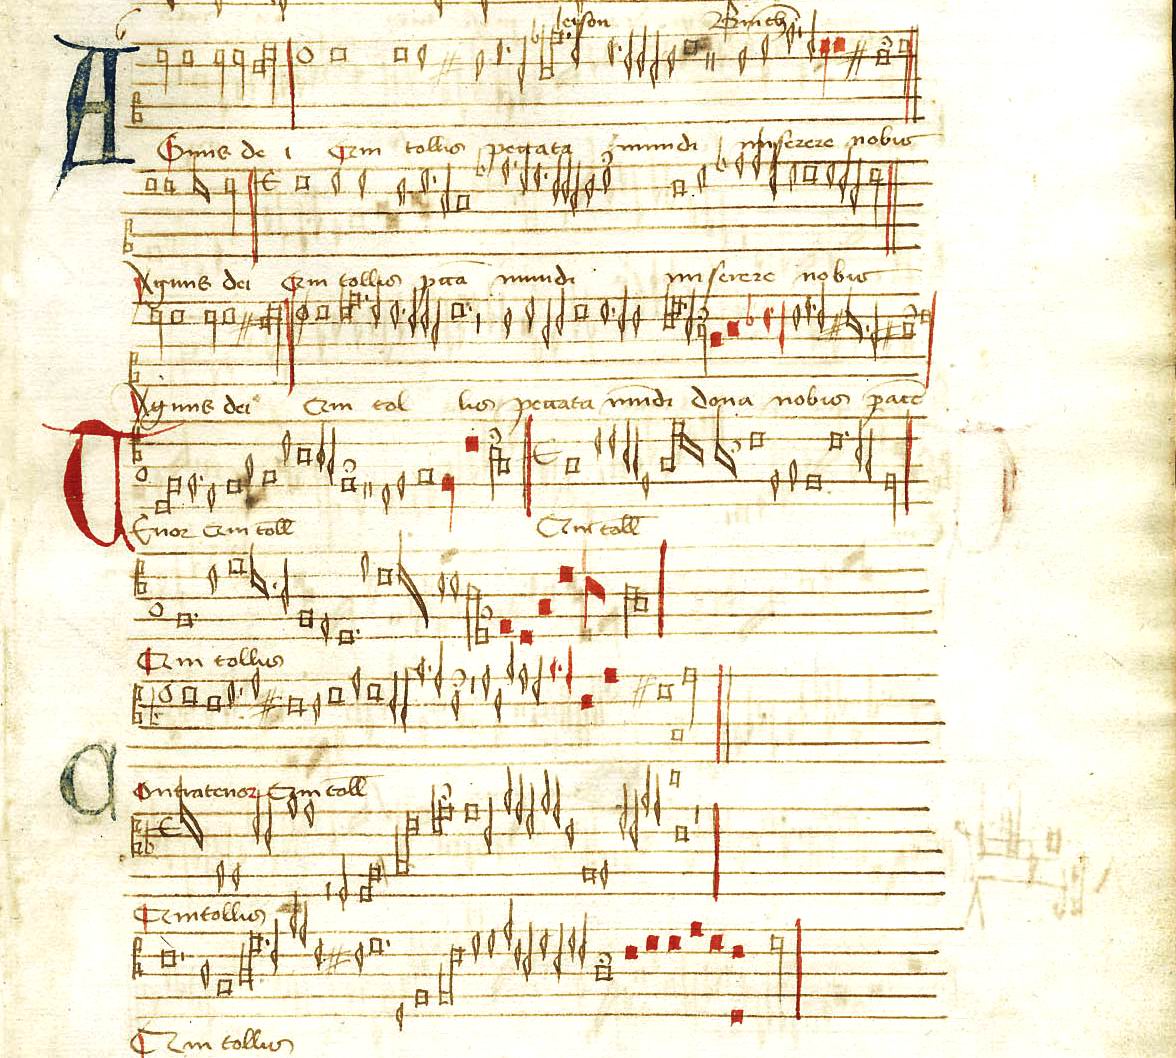 leyson
Agnus dei Qui tollis peccata mundi miserere nobis
Agnus dei Qui tollis pcta mundi miserere nobis
Agnus dei Qui tol lis peccata mundi dona nobis pace
Tenor Qui toll Qui toll
Qui tollis
Contratenor Qui toll
Qui tollis
Qui tollis